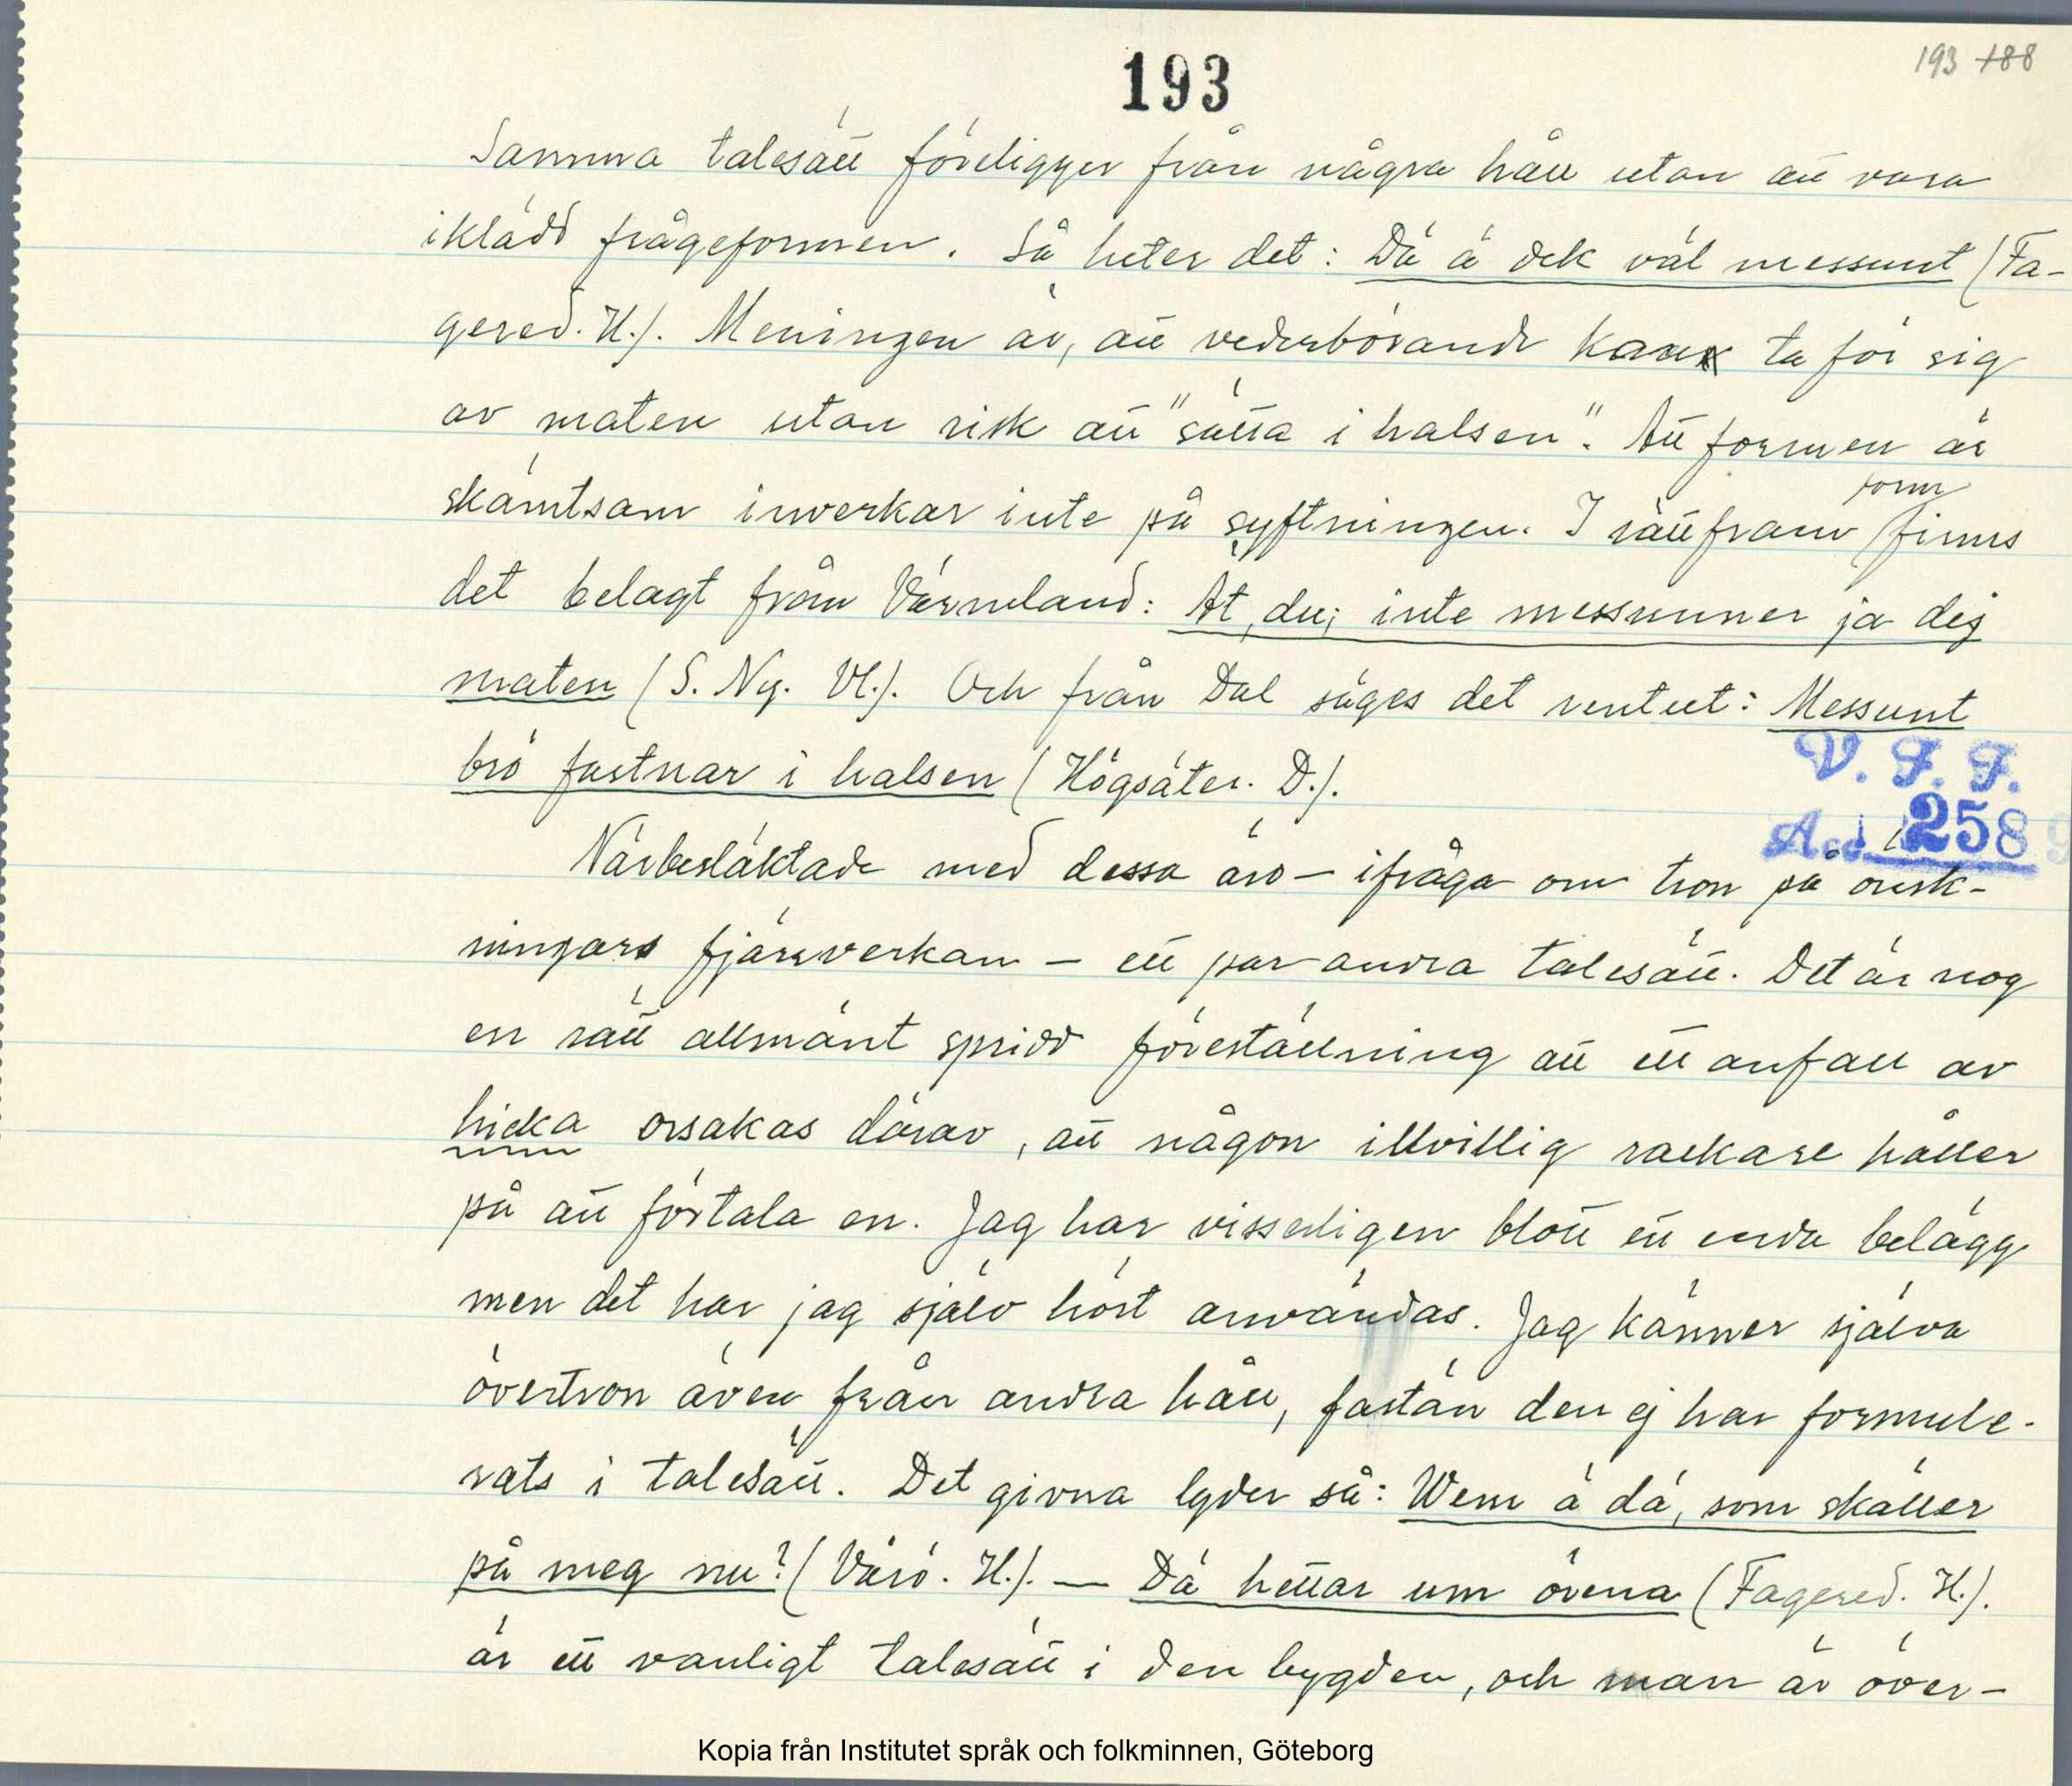 193
193 188
Samma talesätt föreligger från några håll utan att vara
iklädd frågeformen. Så heter det: Dä ä dek väl messunt (Fa-
gered. H.). Meningen är, att vederbörande kan ta för sig
av maten utan risk att "sätta i halsen". Att formen är
skämtsam inverkar inte på syftningen. I rättfram form finns
det belagt från Värmland: Ät, du; inte messunner ja dej
maten (S. Ny. Vl.). Och från Dal säges det rentut: Messunt
brö fastnar i halsen (Högsäter. D.).
V. F. F.
Acc. 2589
Närbesläktade med dessa äro – ifråga om tron på önsk-
ningars fjärrverkan – ett par andra talesätt. Det är nog
en rätt allmänt spridd föreställning att ett anfall av
hicka orsakas därav, att någon illvillig rackare håller
på att förtala en. Jag har visserligen blott ett enda belägg
men det har jag själv hört användas. Jag känner själva
övertron även från andra håll, fastän den ej har formule-
rats i talesätt. Det givna lyder så: Wem ä dä, som skäller
på meg nu? (Värö. H.). — Dä hettar um örena (Fagered. H.).
är ett vanligt talesätt i den bygden, och man är över-
Kopia från Institutet språk och folkminnen, Göteborg